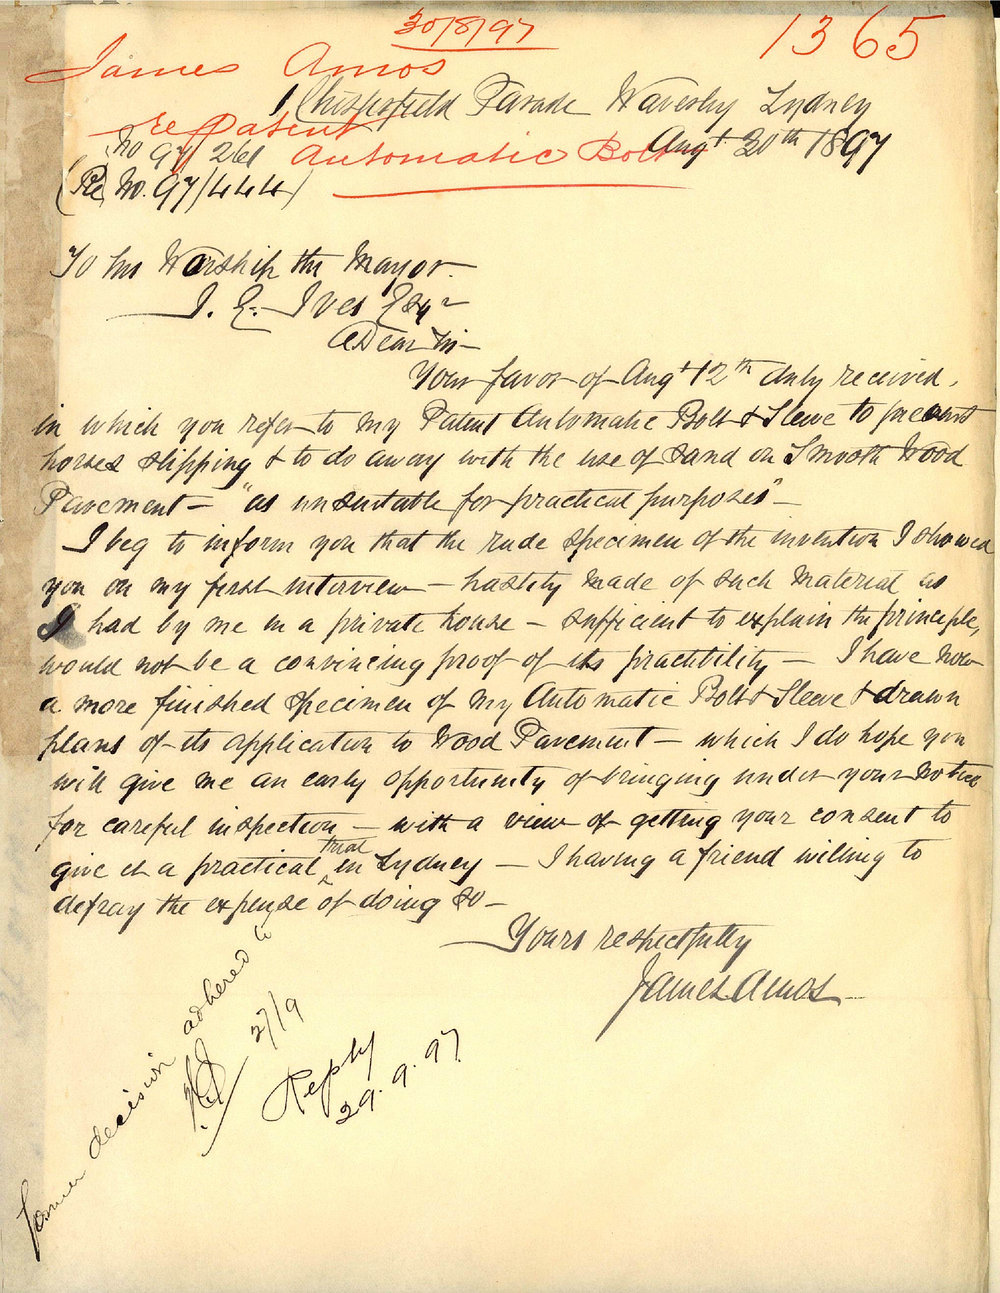 30/8/97
1365
James Amos
1 Chesterfield Parade Waverly Sydney
re Patent
No 97/261 Automatic Bolt Augt 30th 1897
(Re No. 97/444)
To his Worship the Mayor.
I. E. Ives Esqr
Dear Sir
Your favor of Augt 12th duly received,
in which you refer to my Patent Automatic Bolt & Sleeve to prevent
horses slipping & to do away with the use of Sand on Smooth Wood
Pavement – "as unsuitable for practical purposes" –
I beg to inform you that the rude specimen of the invention I showed
you on my first interview – hastily made of such material as
I had by me in a private house – sufficient to explain the principle,
would not be a convincing proof of its practibility – I have now
a more finished specimen of my Automatic Bolt & Sleeve & drawn
plans of its application to Wood Pavement – which I do hope you
will give me an early opportunity of bringing under your notice
for careful inspection – with a view of getting your consent to
give it a practical trial in Sydney – I having a friend willing to
defray the expense of doing so –
Yours respectfully
James Amos
former decision adhered to
27/9
Reply
29.9.97